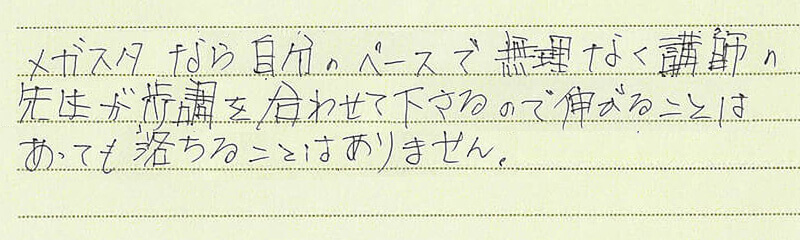 メガスタなら自分のペースで無理なく講師の
先生が歩調を合わせて下さるので伸びることは
あっても落ちることはありません。